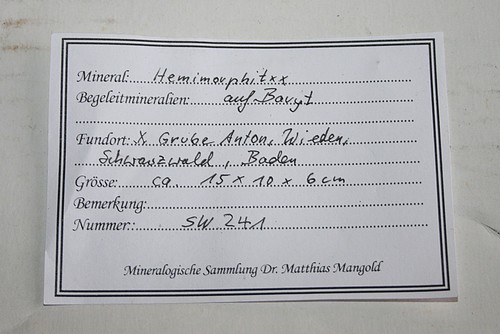 Mineral: Hemimorphit xx
Begeleitmineralien: auf Baryt
Fundort: X Grube Anton, Wieden,
Schwarzwald, Baden
Grösse: ca. 15 x 10 x 6 cm
Bemerkung:
Nummer: SW 241
Mineralogische Sammlung Dr. Matthias Mangold